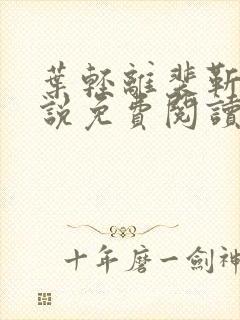 葉輕離裴靳
說免費閱讀
十年磨一劍神